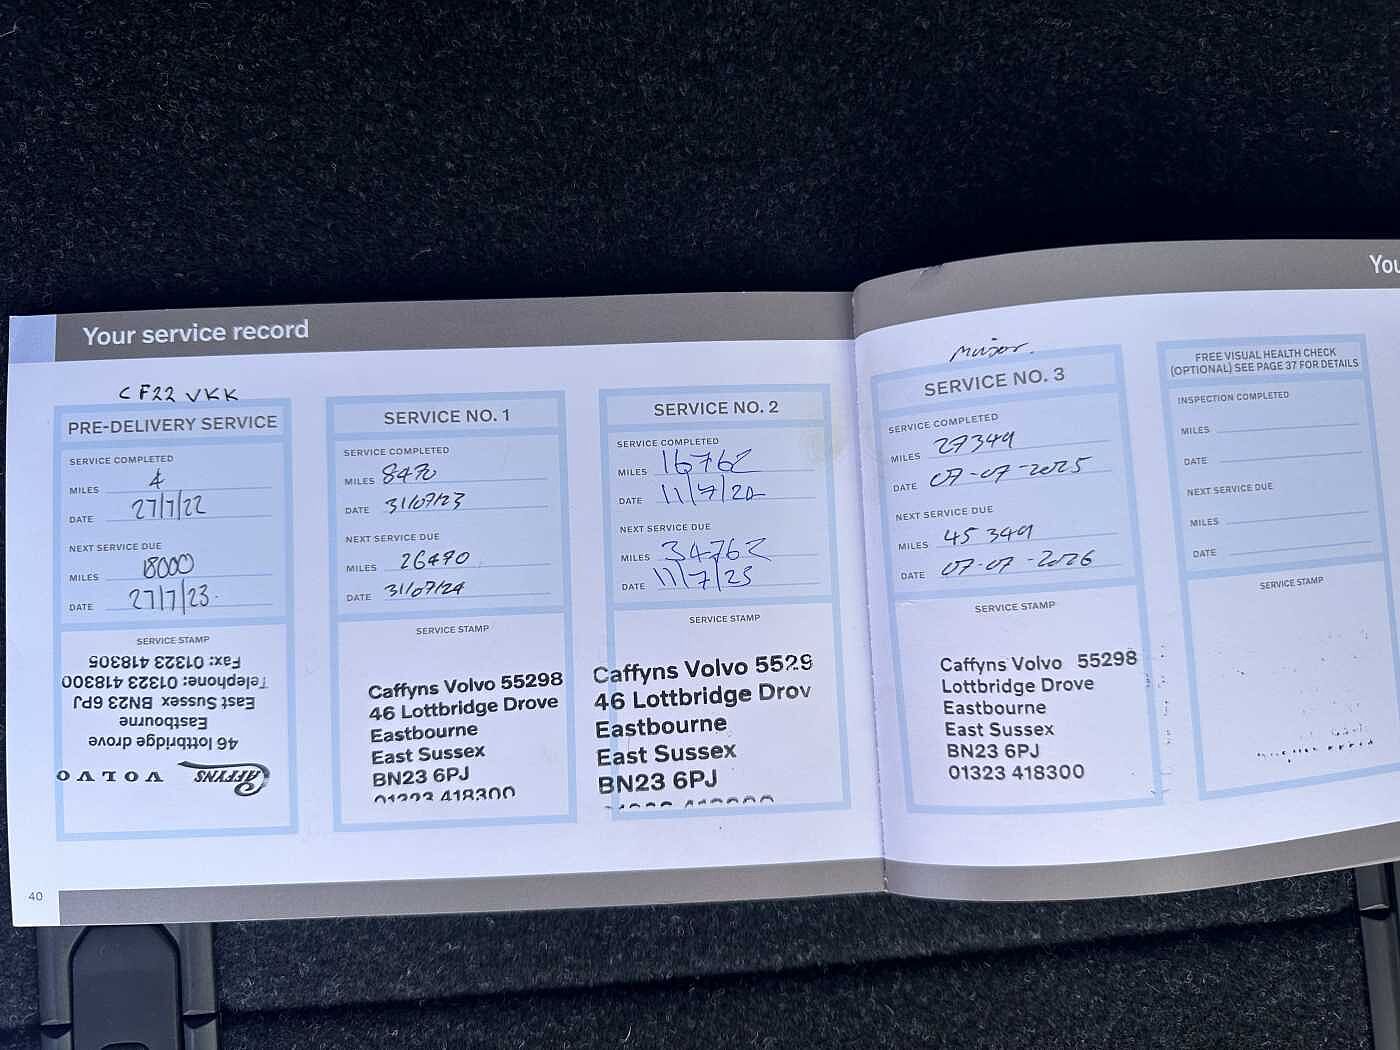 Your service record
You
CF22 VKK
PRE-DELIVERY SERVICE
SERVICE COMPLETED
MILES 4
DATE 27/7/22
NEXT SERVICE DUE
MILES 18000
DATE 27/7/23
SERVICE STAMP
CAFFYNS VOLVO
46 lottbridge drove
Eastbourne
East Sussex BN23 6PJ
Telephone: 01323 418300
Fax: 01323 418305
SERVICE NO. 1
SERVICE COMPLETED
MILES 8470
DATE 31/07/23
NEXT SERVICE DUE
MILES 26470
DATE 31/07/24
SERVICE STAMP
Caffyns Volvo 55298
46 Lottbridge Drove
Eastbourne
East Sussex
BN23 6PJ
01323 418300
SERVICE NO. 2
SERVICE COMPLETED
MILES 16762
DATE 11/7/24
NEXT SERVICE DUE
MILES 34762
DATE 11/7/25
SERVICE STAMP
Caffyns Volvo 5529
46 Lottbridge Drov
Eastbourne
East Sussex
BN23 6PJ
major.
SERVICE NO. 3
SERVICE COMPLETED
MILES 27349
DATE 07-07-2025
NEXT SERVICE DUE
MILES 45349
DATE 07-07-2026
SERVICE STAMP
Caffyns Volvo 55298
Lottbridge Drove
Eastbourne
East Sussex
BN23 6PJ
01323 418300
FREE VISUAL HEALTH CHECK
(OPTIONAL) SEE PAGE 37 FOR DETAILS
INSPECTION COMPLETED
MILES
DATE
NEXT SERVICE DUE
MILES
DATE
SERVICE STAMP
40